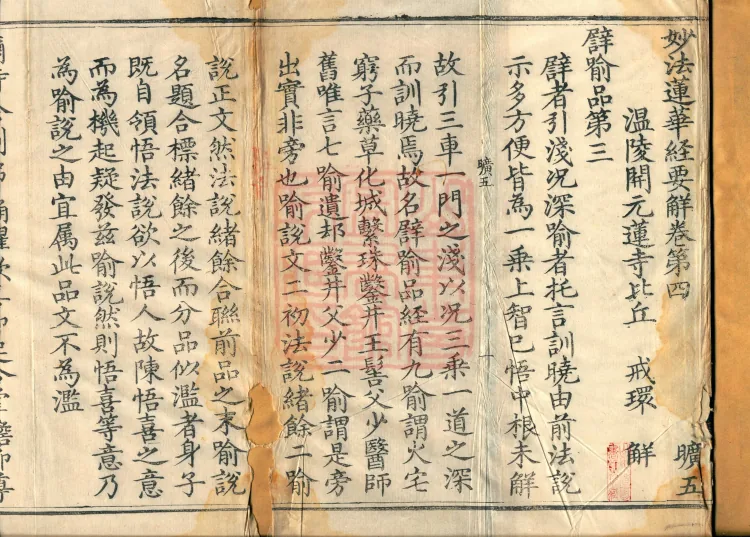 妙法蓮華経要解卷第四 曠五
温陵開元蓮寺比丘 戒環 解
譬喻品第三
譬者引淺况深喻者托言訓曉由前法說
示多方便皆為一乗上智已悟中根未解
曠五 一
故引三車一門之淺以况三乗一道之深
而訓曉焉故名譬喻品經有九喻謂火宅
窮子藥草化城繫珠鑿井王髻父少醫師
舊唯言七喻遺却鑿井父少二喻謂是旁
出實非旁也喻說文二初法說緒餘二喻
說正文然法說緒餘合聮前品之末喻說
名題合標緒餘之後而分品似濫者身子
既自領悟法說欲以悟人故陳悟喜之意
而為機起疑發兹喻說然則悟喜等意乃
為喻說之由宜属此品文不為濫